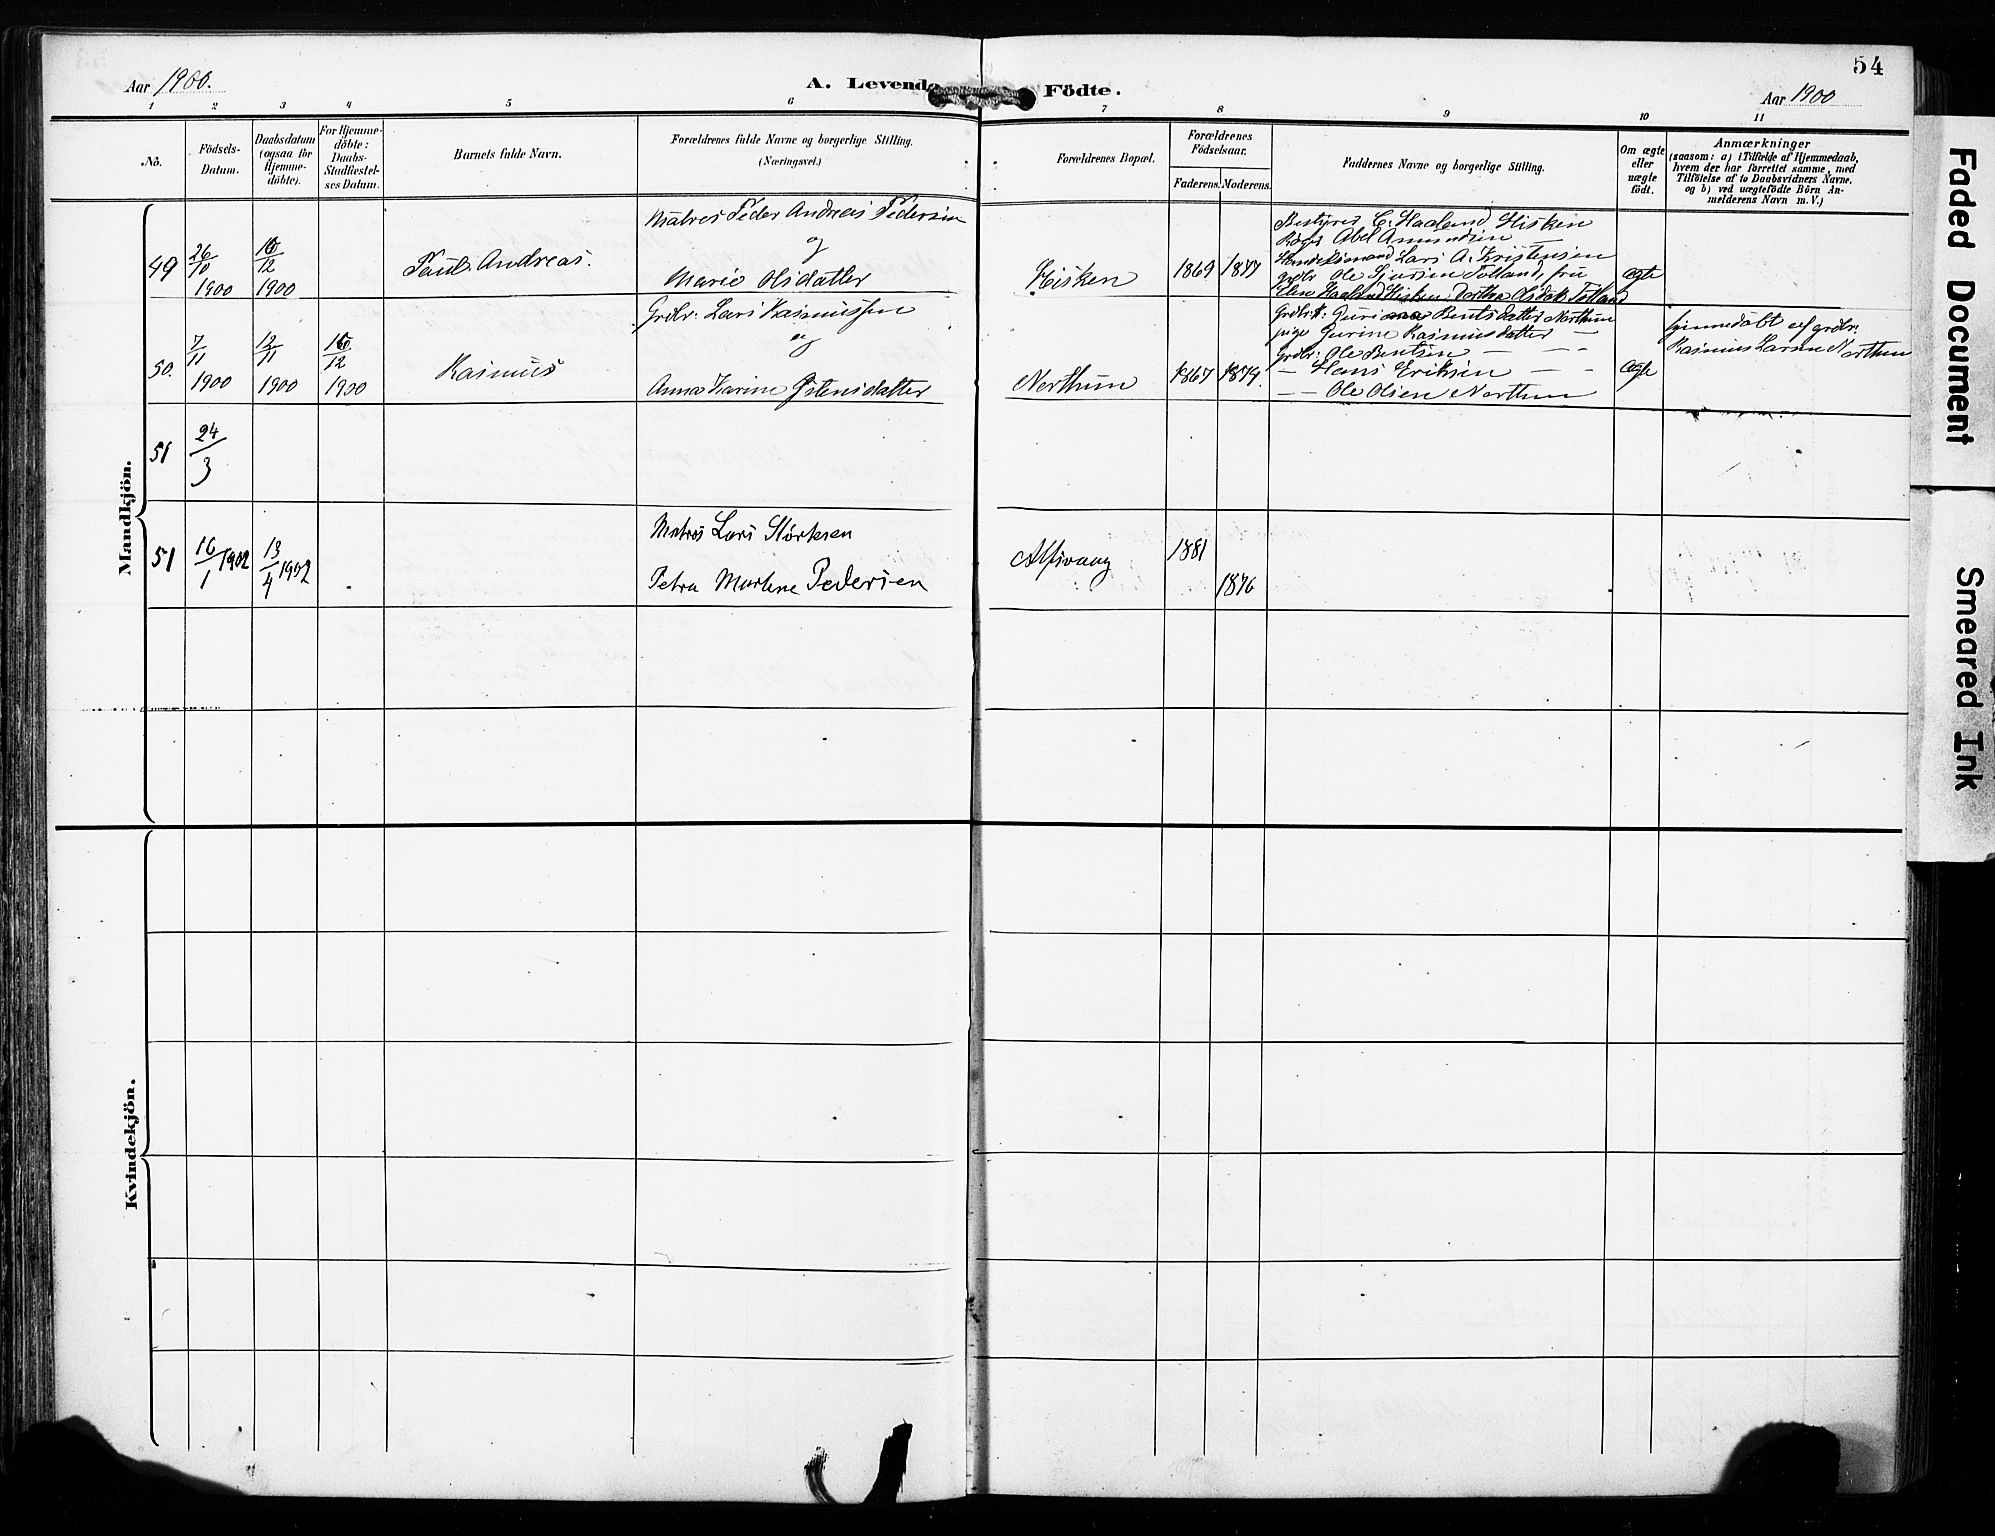 54
Aar 1900.
A. Levende Födte.
Aar 1900
1 2 3 4 5 6 7 8 9 10 11
No.
Födsels-
Datum.
Daabsdatum
(ogsaa for
Hjemme-
döbte).
For Hjemme-
döbte:
Daabs-
Stadfæstel-
ses Datum.
Barnets fulde Navn.
Forældrenes fulde Navne og borgerlige Stilling.
(Næringsvei.)
Forældrenes Bopæl.
Forældrenes
Födselsaar.
Faderens. Moderens.
Faddernes Navne og borgerlige Stilling.
Om ægte
eller
uægte
födt.
Anmærkninger
(saasom: a) i Tilfælde af Hjemmedaab,
hvem der har forrettet samme, med
Tilföielse af to Daabsvidners Navne.
og b) ved uægtefödte Börn An-
melderens Navn m. V.)
Mandkjön.
49
26/10
1900
16/12
1900
Paul Andreas.
Matros Peder Andreas Pedersen
og
Marie Olsdatter
Hisken
1869 1877
Bestyrer C. Haaland Hisken
Abel Amundsen —
Handelsmand Lars A. Kristensen
grdbr Ole Sjursen Totland, fru
Elen Haaland Hisken, Dorthea Olsdat. Totland
ægte
50.
7/11
1900
12/11
1900
16/12
1900
Rasmus
Grdbr. Lars Rasmussen
og
Anna Karine Østensdatter
Northun
1867 1879.
Guri Bentsdatter Northun
pige Gurine Rasmusdatter —
Grdbr: Ole Bentsen — —
— Hans Eriksen — —
— — Ole Olsen Northun
ægte
hjemmedöbt af grdbr.
Rasmus Larsen Northun
51
24/3
51
16/1 1902
13/4 1902
Matros Lars Størksen
Petra Martene Pedersen
Alfsvaag
1881
1876
Kvindekjön.
Faded Document
Smeared Ink